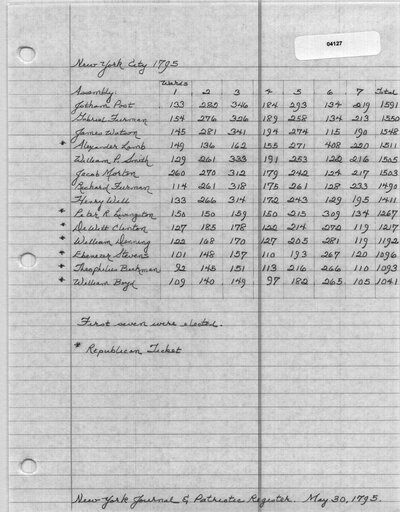 04127
New York City 1795
Wards
Assembly: 1 2 3 4 5 6 7 Total
Jotham Post 133 282 346 184 293 134 219 1591
Gabriel Furman 154 276 326 189 258 134 213 1550
James Watson 145 281 341 194 274 115 190 1548
* Alexander Lamb 149 136 162 155 271 408 220 1511
William P. Smith 129 261 333 191 253 122 216 1505
Jacob Morton 260 270 312 179 242 124 217 1503
Richard Furman 114 261 318 175 261 128 233 1490
Henry Wall 133 266 314 172 243 129 195 1411
* Peter R. Livingston 150 150 159 150 215 309 134 1267
* DeWitt Clinton 127 185 178 122 214 272 119 1217
* William Denning 122 168 170 127 205 281 119 1192
* Ebenezer Stevens 101 148 157 110 193 267 120 1096
* Theophilus Beekman 92 145 151 113 216 266 110 1093
* William Boyd 109 140 149 97 182 265 105 1041
First seven were elected.
* Republican Ticket
New York Journal & Patriotic Register. May 30, 1795.